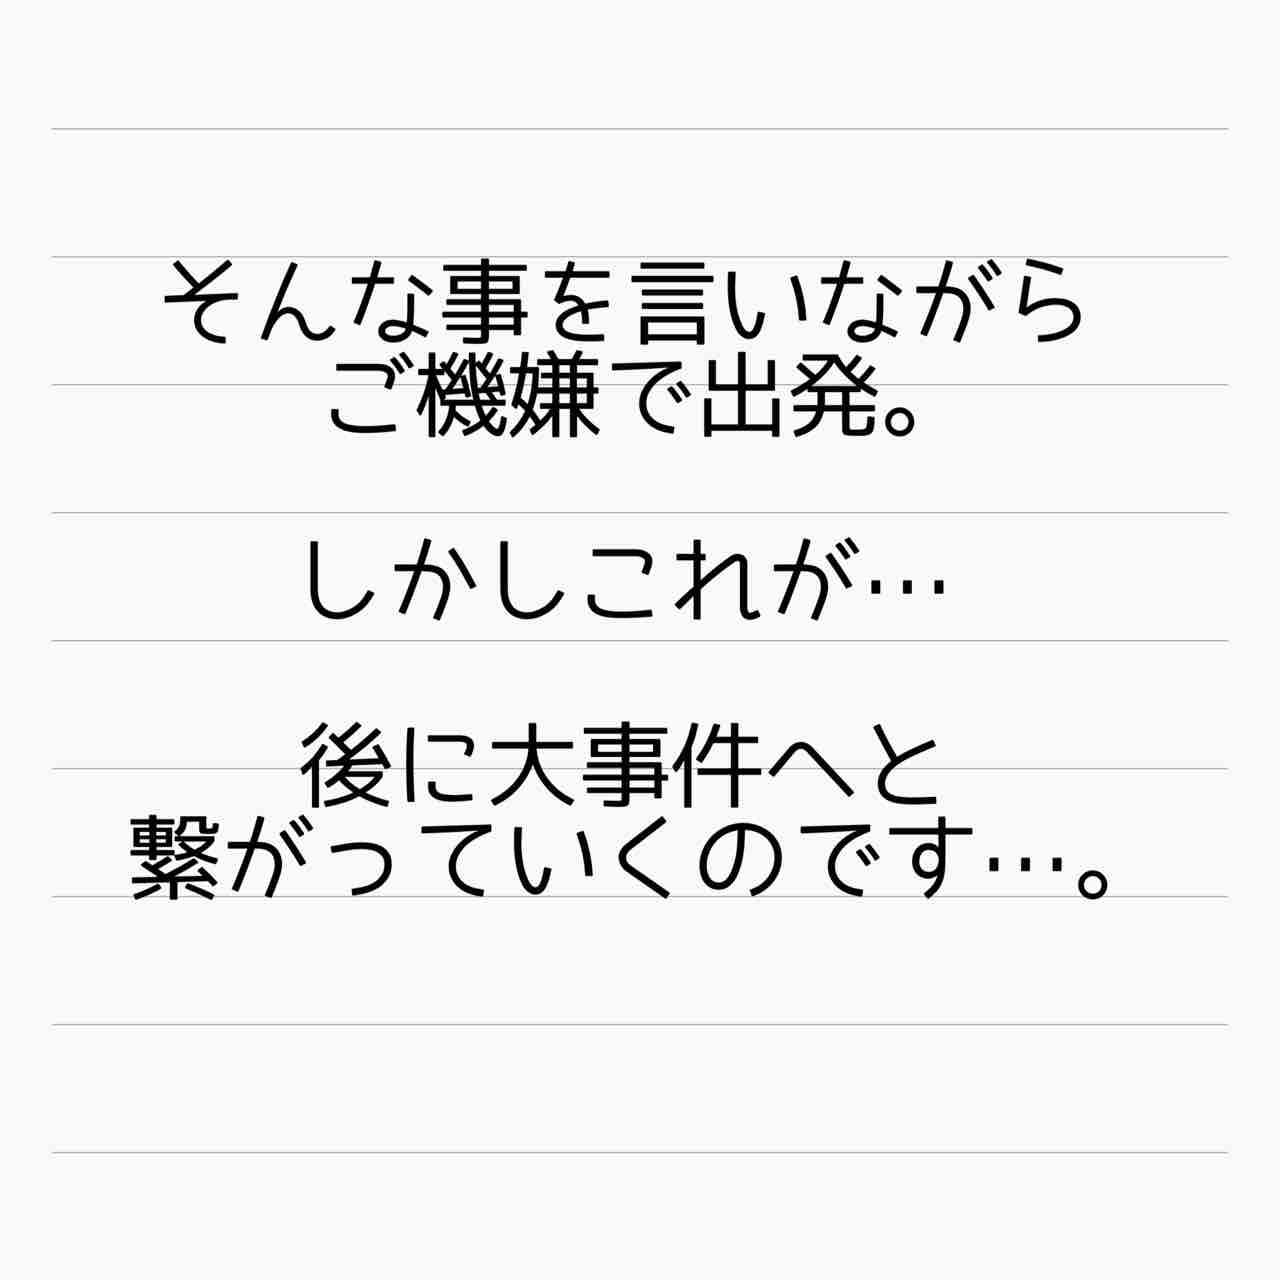 そんな事を言いながら
ご機嫌で出発。
しかしこれが…
後に大事件へと
繋がっていくのです…。